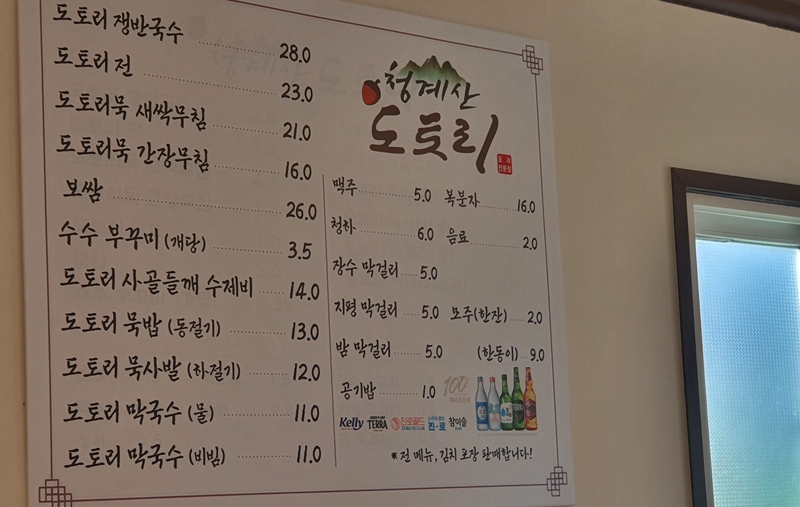 도토리 쟁반국수 28.0
도토리 전 23.0
도토리묵 새싹무침 21.0
도토리묵 간장무침 16.0
보쌈 26.0
수수 부꾸미 (개당) 3.5
도토리 사골들깨 수제비 14.0
도토리 묵밥 (동절기) 13.0
도토리 묵사발 (하절기) 12.0
도토리 막국수 (물) 11.0
도토리 막국수 (비빔) 11.0
청계산
도토리
요리
전문점
맥주 5.0 복분자 16.0
청하 6.0 음료 2.0
장수 막걸리 5.0
지평 막걸리 5.0 모주(한잔) 2.0
밤 막걸리 5.0 (한동이) 9.0
공기밥 1.0
100
Kelly TERRA 진로골드 진로 참이슬
* 전 메뉴, 김치 포장 판매합니다!